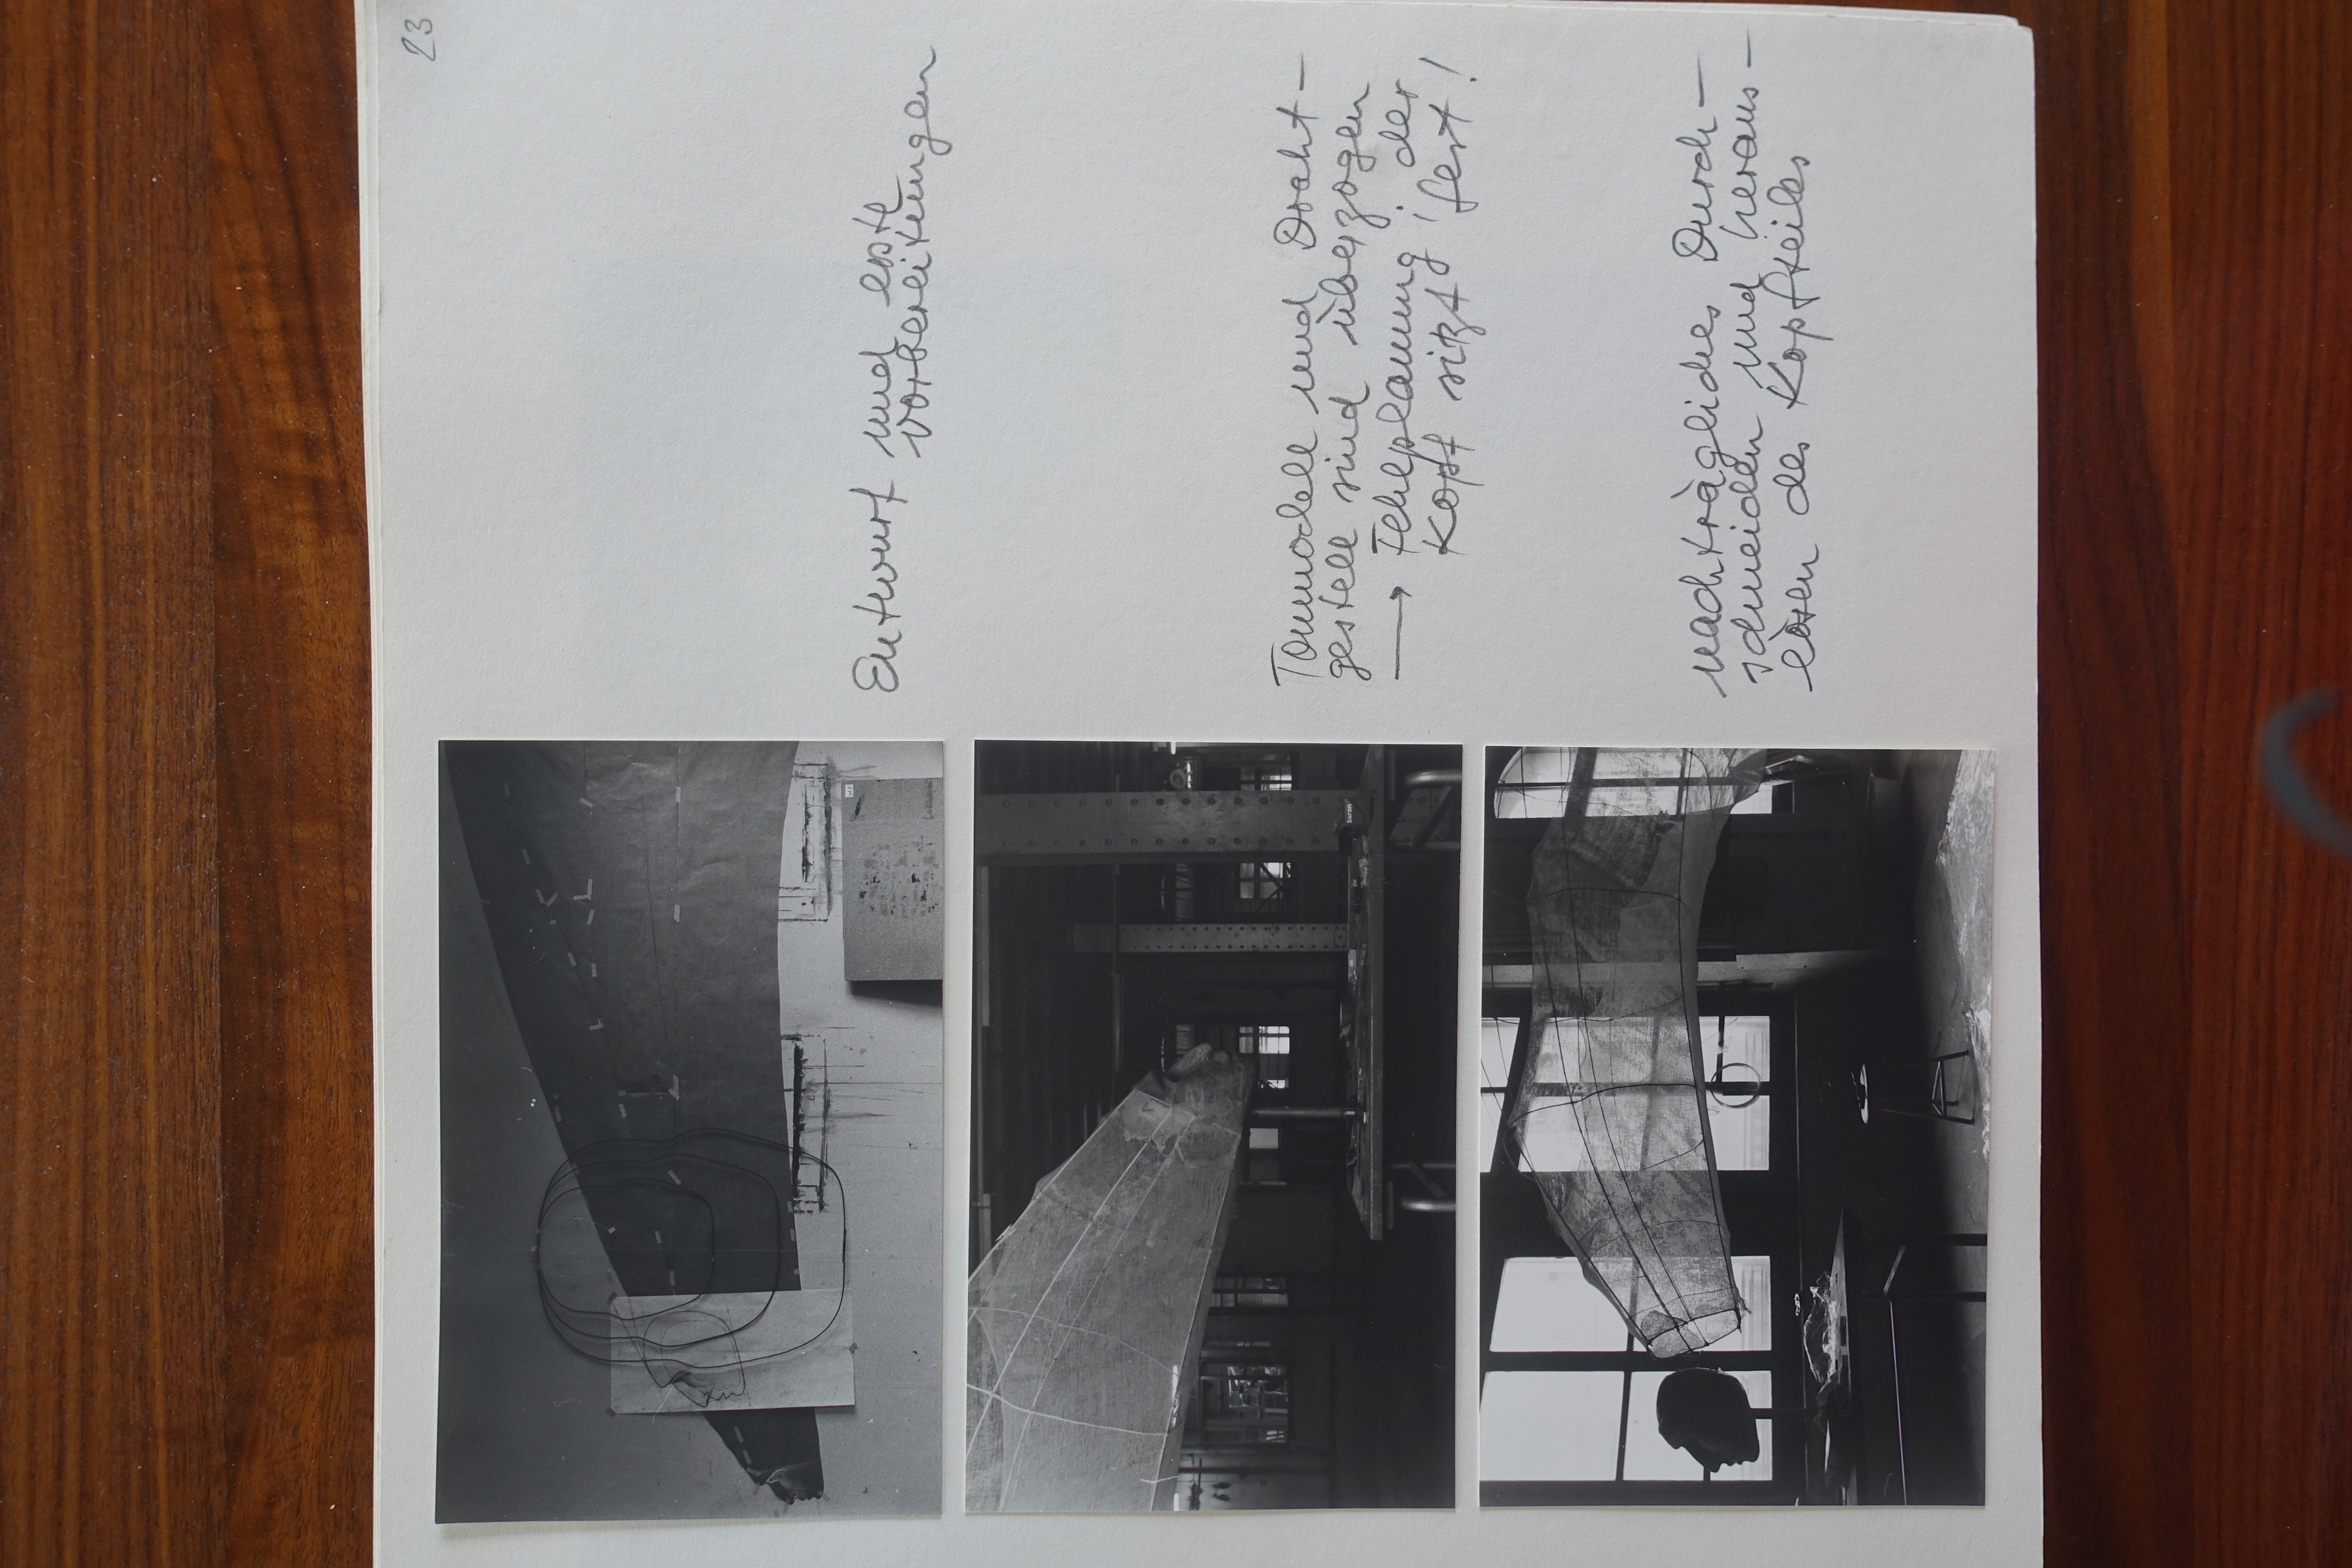 23
Entwurf und erste
Vorbereitungen
Tonmodell und Draht-
gestell sind überzogen
→ Fehlplanung, der
Kopf sitzt fest!
nachträgliches Durch-
schneiden und heraus-
lösen des Kopfteiles